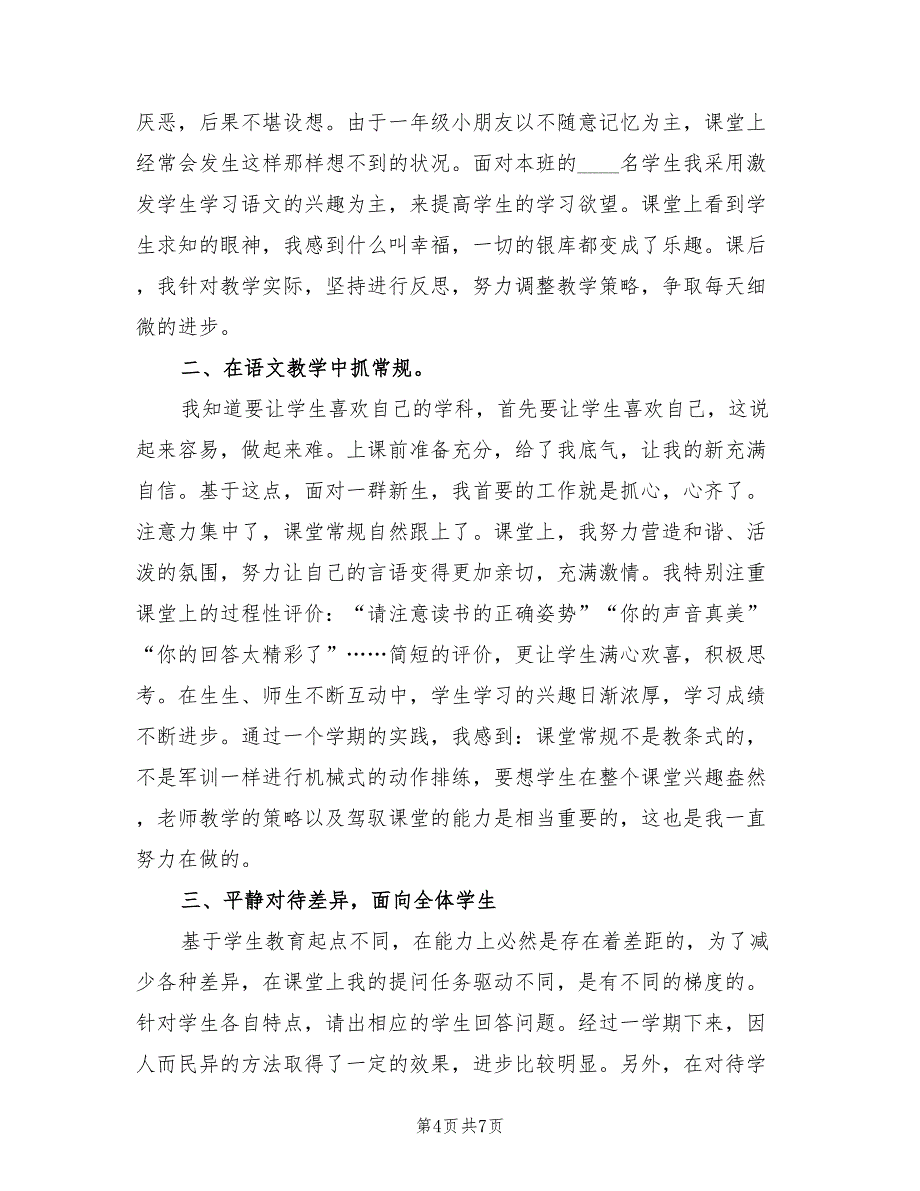 厌恶，后果不堪设想。由于一年级小朋友以不随意记忆为主，课堂上
经常会发生这样那样想不到的状况。面对本班的____名学生我采用激
发学生学习语文的兴趣为主，来提高学生的学习欲望。课堂上看到学
生求知的眼神，我感到什么叫幸福，一切的银库都变成了乐趣。课后
，我针对教学实际，坚持进行反思，努力调整教学策略，争取每天细
微的进步。
二、在语文教学中抓常规。
我知道要让学生喜欢自己的学科，首先要让学生喜欢自己，这说
起来容易，做起来难。上课前准备充分，给了我底气，让我的新充满
自信。基于这点，面对一群新生，我首要的工作就是抓心，心齐了。
注意力集中了，课堂常规自然跟上了。课堂上，我努力营造和谐、活
泼的氛围，努力让自己的言语变得更加亲切，充满激情。我特别注重
课堂上的过程性评价：“请注意读书的正确姿势”“你的声音真美”
“你的回答太精彩了”……简短的评价，更让学生满心欢喜，积极思
考。在生生、师生不断互动中，学生学习的兴趣日渐浓厚，学习成绩
不断进步。通过一个学期的实践，我感到：课堂常规不是教条式的，
不是军训一样进行机械式的动作排练，要想学生在整个课堂兴趣盎然
，老师教学的策略以及驾驭课堂的能力是相当重要的，这也是我一直
努力在做的。
三、平静对待差异，面向全体学生
基于学生教育起点不同，在能力上必然是存在着差距的，为了减
少各种差异，在课堂上我的提问任务驱动不同，是有不同的梯度的。
针对学生各自特点，请出相应的学生回答问题。经过一学期下来，因
人而民异的方法取得了一定的效果，进步比较明显。另外，在对待学
第4页共7页